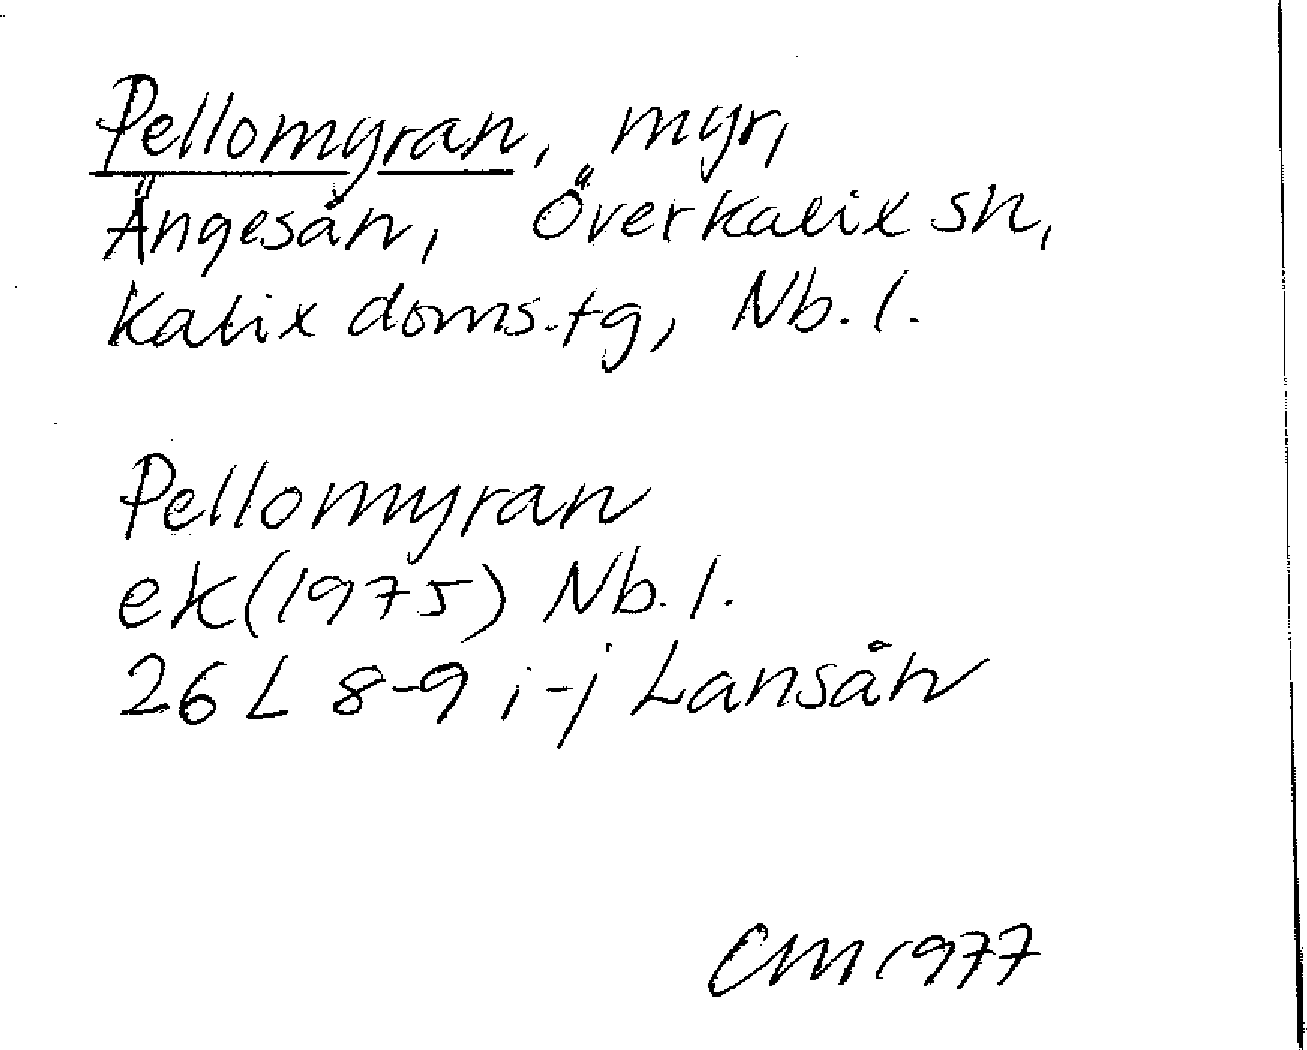 Pellomyran, myr,
Ängesån, Överkalix sn,
Kalix doms.tg, Nb. l.
Pellomyran
ek (1975) Nb. l.
26 L 8-9 i-j Lansån
CM 1977